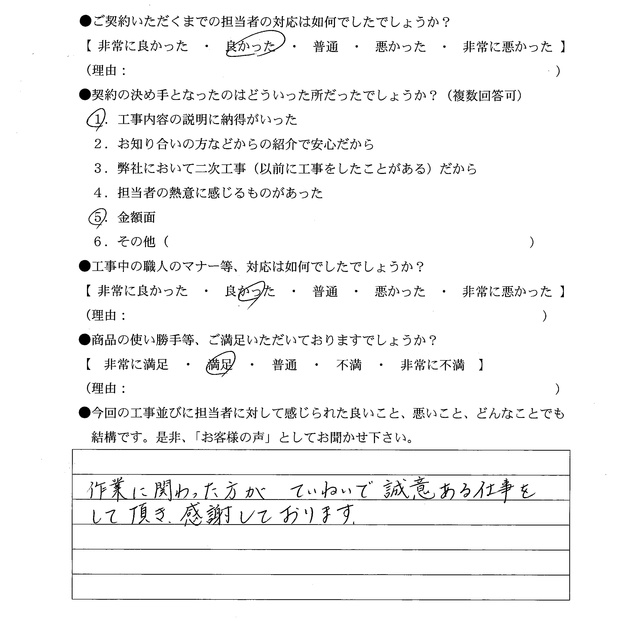 ●ご契約いただくまでの担当者の対応は如何でしたでしょうか？
【 非常に良かった ・ 良かった ・ 普通 ・ 悪かった ・ 非常に悪かった 】
（理由： ）
●契約の決め手となったのはどういった所だったでしょうか？（複数回答可）
１．工事内容の説明に納得がいった
２．お知り合いの方などからの紹介で安心だから
３．弊社において二次工事（以前に工事をしたことがある）だから
４．担当者の熱意に感じるものがあった
５．金額面
６．その他（ ）
●工事中の職人のマナー等、対応は如何でしたでしょうか？
【 非常に良かった ・ 良かった ・ 普通 ・ 悪かった ・ 非常に悪かった 】
（理由： ）
●商品の使い勝手等、ご満足いただいておりますでしょうか？
【 非常に満足 ・ 満足 ・ 普通 ・ 不満 ・ 非常に不満 】
（理由： ）
●今回の工事並びに担当者に対して感じられた良いこと、悪いこと、どんなことでも
結構です。是非、「お客様の声」としてお聞かせ下さい。
作業に関わった方が ていねいで誠意ある仕事を
して頂き、感謝しております。